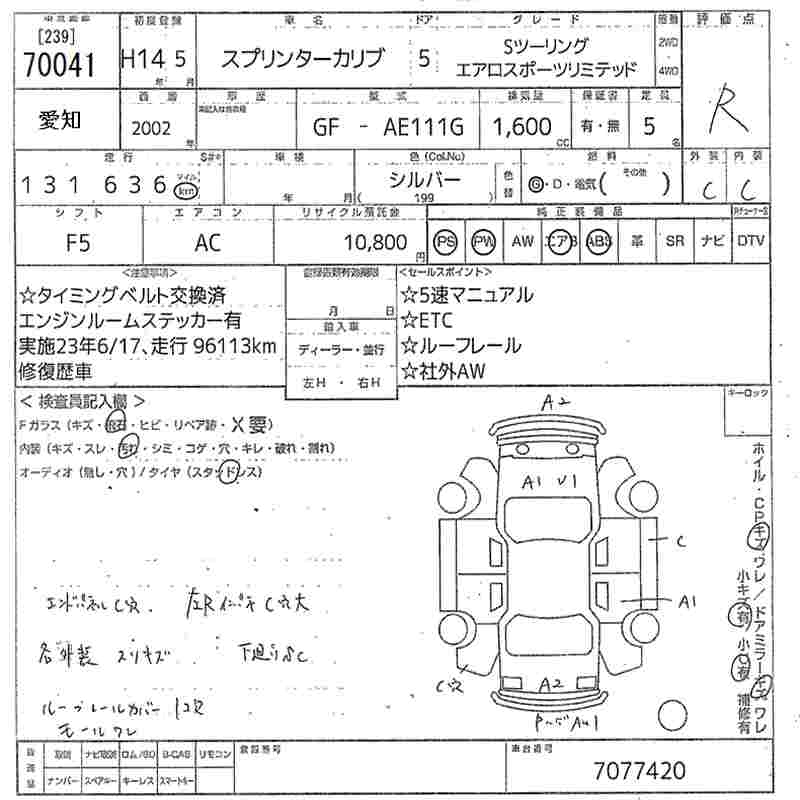 [239] 初度登録 車名 ドア グレード 評価点
70041 H14 5 スプリンターカリブ 5 Sツーリング 2WD
年 月 エアロスポーツリミテッド 4WD
R
車歴 型式 排気量 保証書 定員
愛知 2002 年 GF - AE111G 1,600 CC 有・無 5 名
走行 車検 色(Col.No) 燃料 外装 内装
131636 マイル km 年 月 シルバー ( 199 ) 色替 G・D・電気( その他 ) C C
シフト エアコン リサイクル預託金 純正装備品
F5 AC 10,800 円 PS PW AW エアB ABS 革 SR ナビ DTV
<注意事項>
☆タイミングベルト交換済
エンジンルームステッカー有
実施23年6/17、走行 96113km
修復歴車
月 日
輸入車
ディーラー・並行
左H ・ 右H
<セールスポイント>
☆5速マニュアル
☆ETC
☆ルーフレール
☆社外AW
キーロック
< 検査員記入欄 >
Fガラス (キズ・飛石・ヒビ・リペア跡・X要)
内装 (キズ・スレ・汚れ・シミ・コゲ・穴・キレ・破れ・割れ)
オーディオ (無し・穴) / タイヤ (スタッドレス)
A2
A1 U1
C
A1
C穴
A2
エンドパネルC穴. 左Rインナー C穴大
各外装 スリキズ 下廻りSC
ルーフレールカバー 1コ欠
モールワレ
ホイル・CPキズ・ワレ/ドアミラーキズ・ワレ
小キズ有 小凹有 補修有
取説 ナビ取説 ロム/SD B-CAS リモコン 登録番号 車台番号
ナンバー スペアキー キーレス スマートキー 7077420